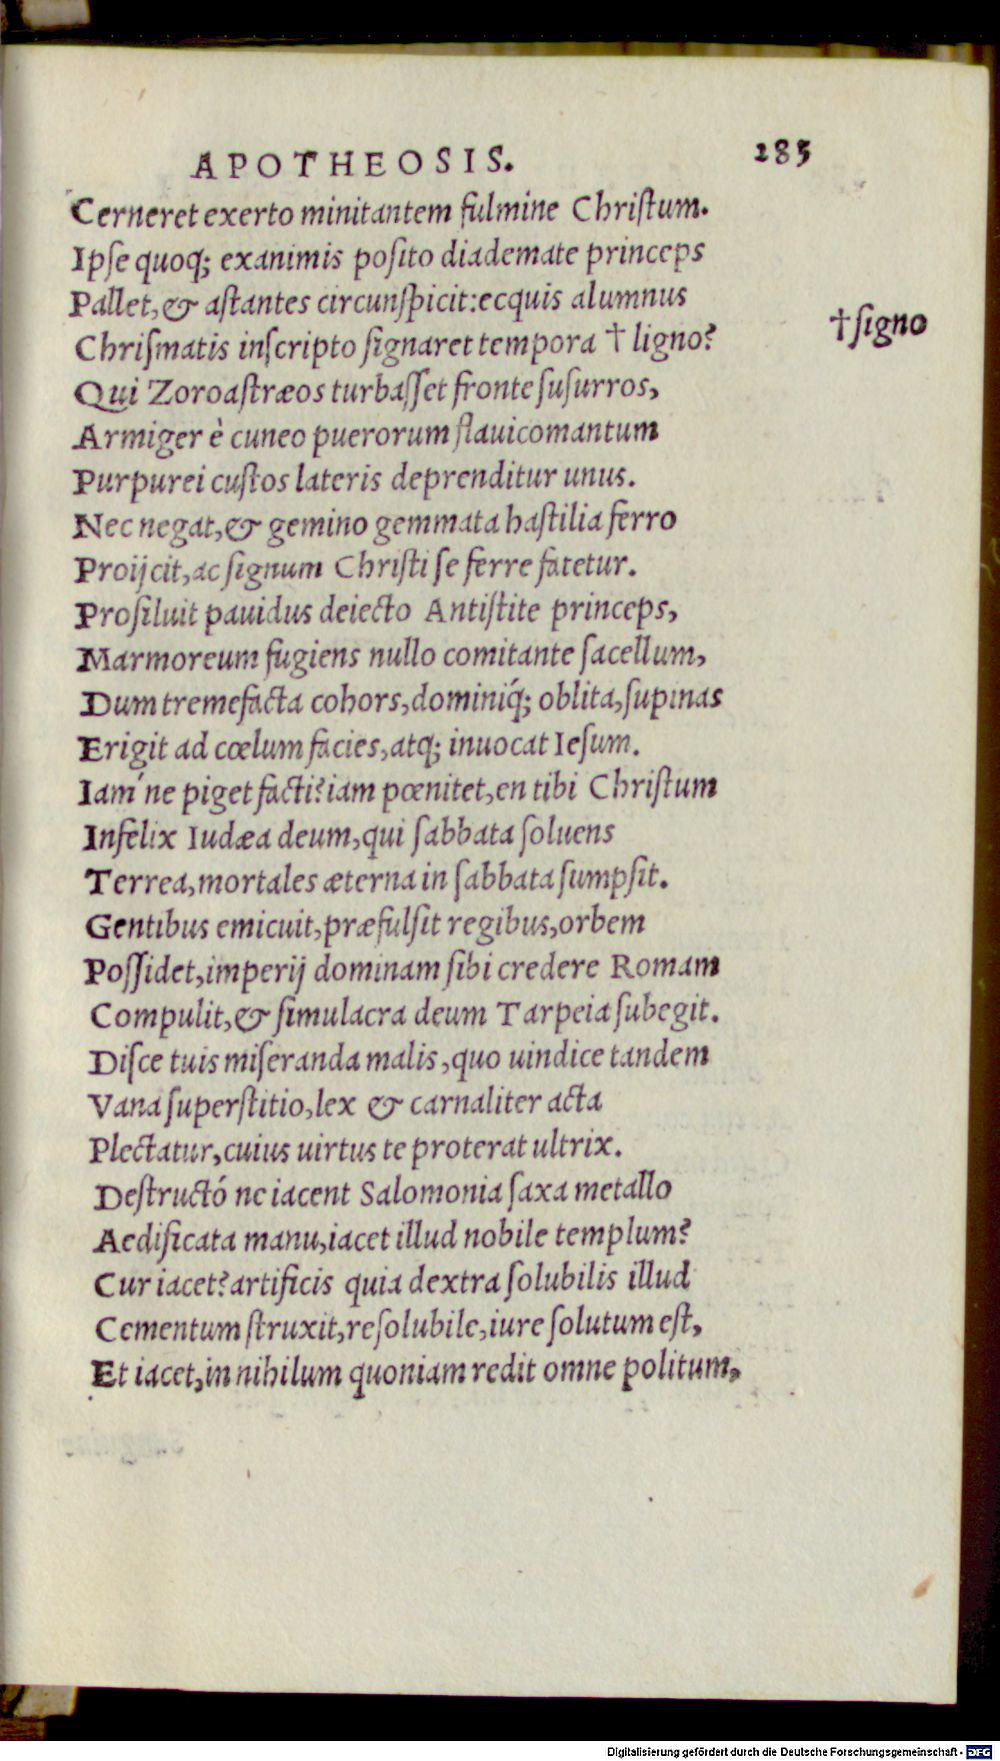 APOTHEOSIS. 285
Cerneret exerto minitantem fulmine Chriſtum.
Ipſe quoq; exanimis poſito diademate princeps
Pallet, & aſtantes circunſpicit: ecquis alumnus
Chriſmatis inſcripto ſignaret tempora † ligno?
†ſigno
Qui Zoroaſtræos turbaſſet fronte ſuſurros,
Armiger è cuneo puerorum flauicomantum
Purpurei cuſtos lateris deprenditur unus.
Nec negat, & gemino gemmata haſtilia ferro
Proijcit, ac ſignum Chriſti ſe ferre fatetur.
Proſiluit pauidus deiecto Antiſtite princeps,
Marmoreum fugiens nullo comitante ſacellum,
Dum tremefacta cohors, dominiq́; oblita, ſupinas
Erigit ad cœlum facies, atq; inuocat Ieſum.
Iam´ne piget facti? iam pœnitet, en tibi Chriſtum
Infelix Iudæa deum, qui ſabbata ſoluens
Terrea, mortales æterna in ſabbata ſumpſit.
Gentibus emicuit, præfulſit regibus, orbem
Poſſidet, imperij dominam ſibi credere Romam
Compulit, & ſimulacra deum Tarpeia ſubegit.
Diſce tuis miſeranda malis, quo uindice tandem
Vana ſuperſtitio, lex & carnaliter acta
Plectatur, cuius uirtus te proterat ultrix.
Deſtructó ne iacent Salomonia ſaxa metallo
Aedificata manu, iacet illud nobile templum?
Cur iacet? artificis quia dextra ſolubilis illud
Cementum ſtruxit, reſolubile, iure ſolutum eſt,
Et iacet, in nihilum quoniam redit omne politum,
Digitalisierung gefördert durch die Deutsche Forschungsgemeinschaft - DFG